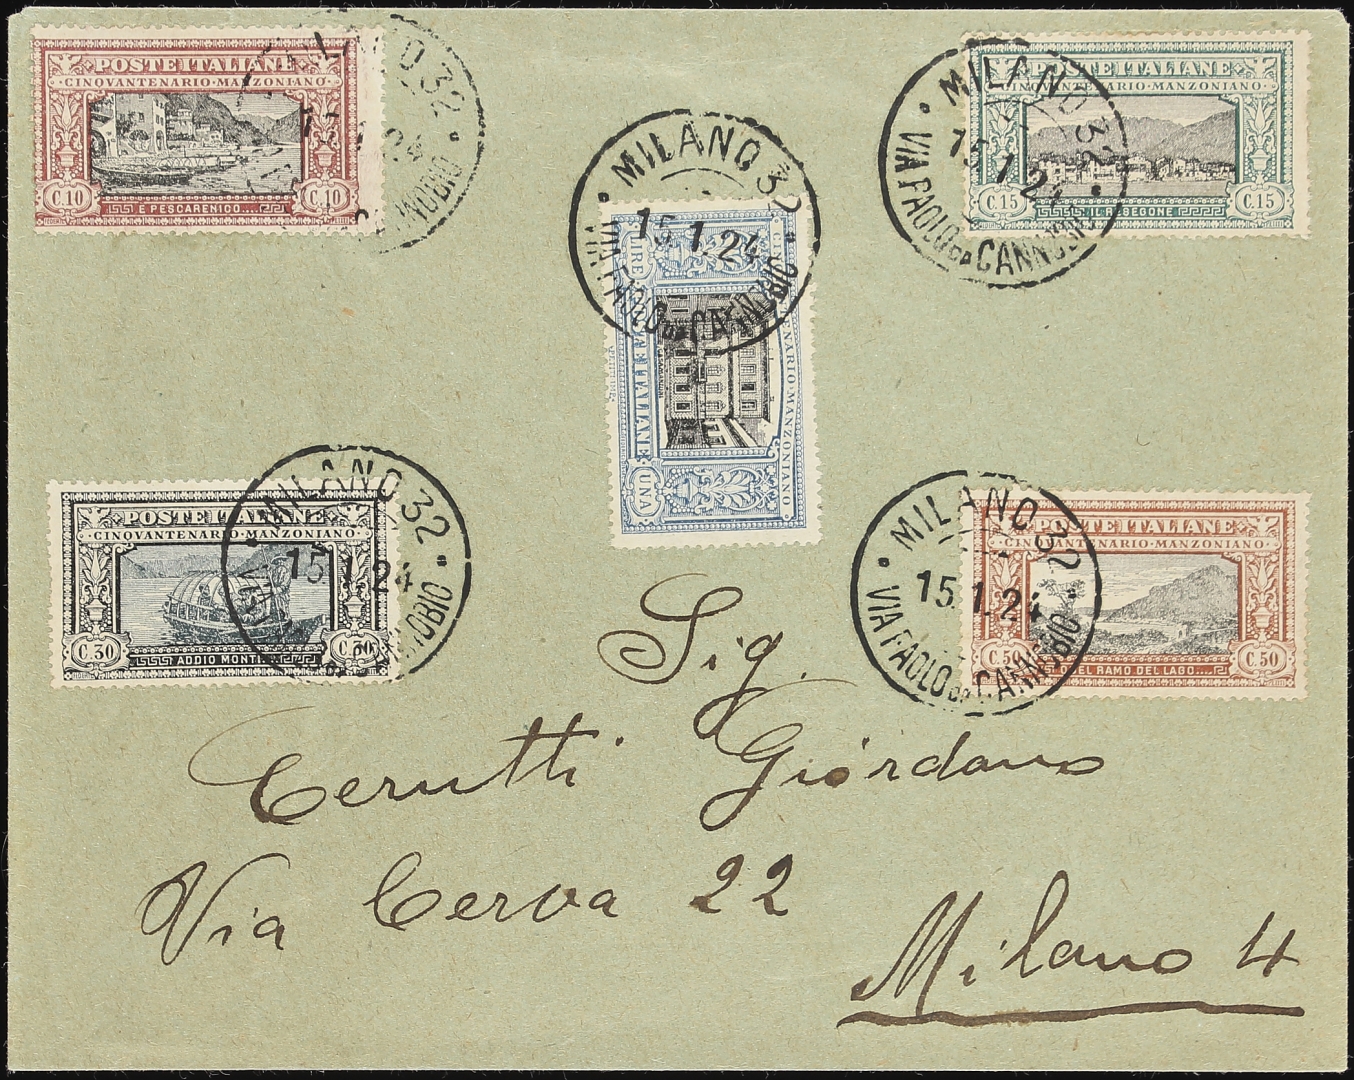 POSTE ITALIANE
CINQVANTENARIO·MANZONIANO
C.10 C.10
E PESCARENICO
MILANO 32
15.1.24
POSTE ITALIANE
CINQVANTENARIO·MANZONIANO
C.15 C.15
MILANO 32
15.1.24
VIA PAOLO DA CANNOBIO
MILANO 32
15.1.24
VIA PAOLO DA CANNOBIO
CINQVANTENARIO·MANZONIANO
POSTE ITALIANE
LIRE UNA
POSTE ITALIANE
CINQVANTENARIO·MANZONIANO
C.30 C.30
ADDIO MONTI
MILANO 32
15.1.24
VIA PAOLO DA CANNOBIO
POSTE ITALIANE
CINQVANTENARIO·MANZONIANO
C.50 C.50
QUEL RAMO DEL LAGO....
MILANO 32
15.1.24
VIA PAOLO DA CANNOBIO
Sig.
Cerutti Giordano
Via Cerva 22
Milano 4